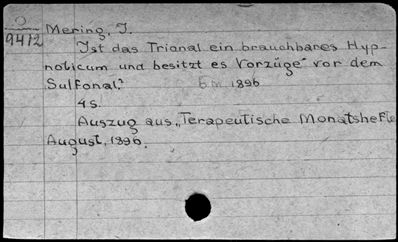 O
9412
Mering, J.
Ist das Trional ein brauchbares Hyp-
noticum und besitzt es Vorzüge vor dem
Sulfonal?
1896
4s.
Auszug aus „Terapeutische Monatshefte
August, 1896.